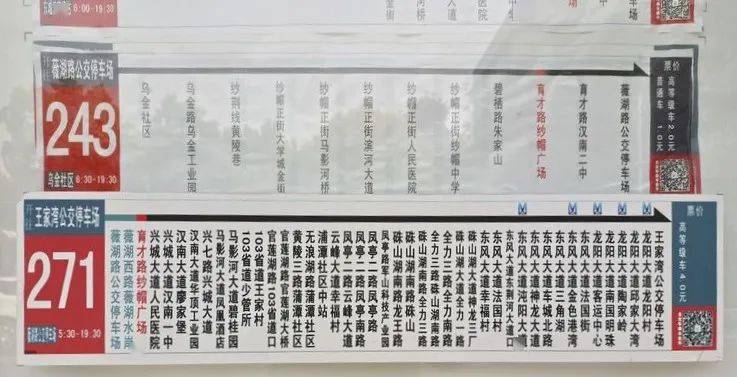 6:00-19:30
河桥
医院
二中
广场
开往
薇湖路公交停车场
243
乌金社区 6:30-19:30
乌金社区
乌金路乌金工业园
纱荆线黄陵巷
纱帽正街大学城金街
纱帽正街马影河桥
纱帽正街滨河大道
纱帽正街人民医院
纱帽正街纱帽中学
碧栖路朱家山
育才路纱帽广场
育才路汉南二中
薇湖路公交停车场
票价
高等级车2.0元
普通车1.0元
开往
王家湾公交停车场
271
薇湖路公交停车场 5:30-19:30
薇湖路公交停车场
薇湖西路薇湖水岸
育才路纱帽广场
兴城大道人民医院
兴城大道汉南一中
汉南大道廖家堡
汉南大道华顶工业园
兴七路兴城大道
马影河大道凤凰酒店
马影河大道碧桂园
103省道少管所
103省道王家村
官莲湖路103省道口
官莲湖路官莲湖大桥
黄陵三路蒲潭社区
无浪湖路蒲潭社区
浦潭社区中心站
云峰大道幸福村
凤亭二路云峰大道
凤亭二路凤亭南路
凤亭二路凤亭一路
凤亭路军山科技产业园
硃山湖南路龙王路
硃山湖南路硃山
硃山湖南路全力三路
全力三路硃山湖南路
全力二路全力南路
硃山湖大道全力一路
硃山湖大道神龙三厂
东风大道幸福村
东风大道法国村
东风大道东荆河大道口
东风大道沌阳大道
东风大道神龙大道
东风大道车城北路
东风大道三角湖
东风大道金色港湾
东风大道法国街
龙阳大道客运中心
龙阳大道南国明珠
龙阳大道陶家岭
龙阳大道邱家大湾
龙阳大道龙阳村
王家湾公交停车场
票价
高等级车4.0元